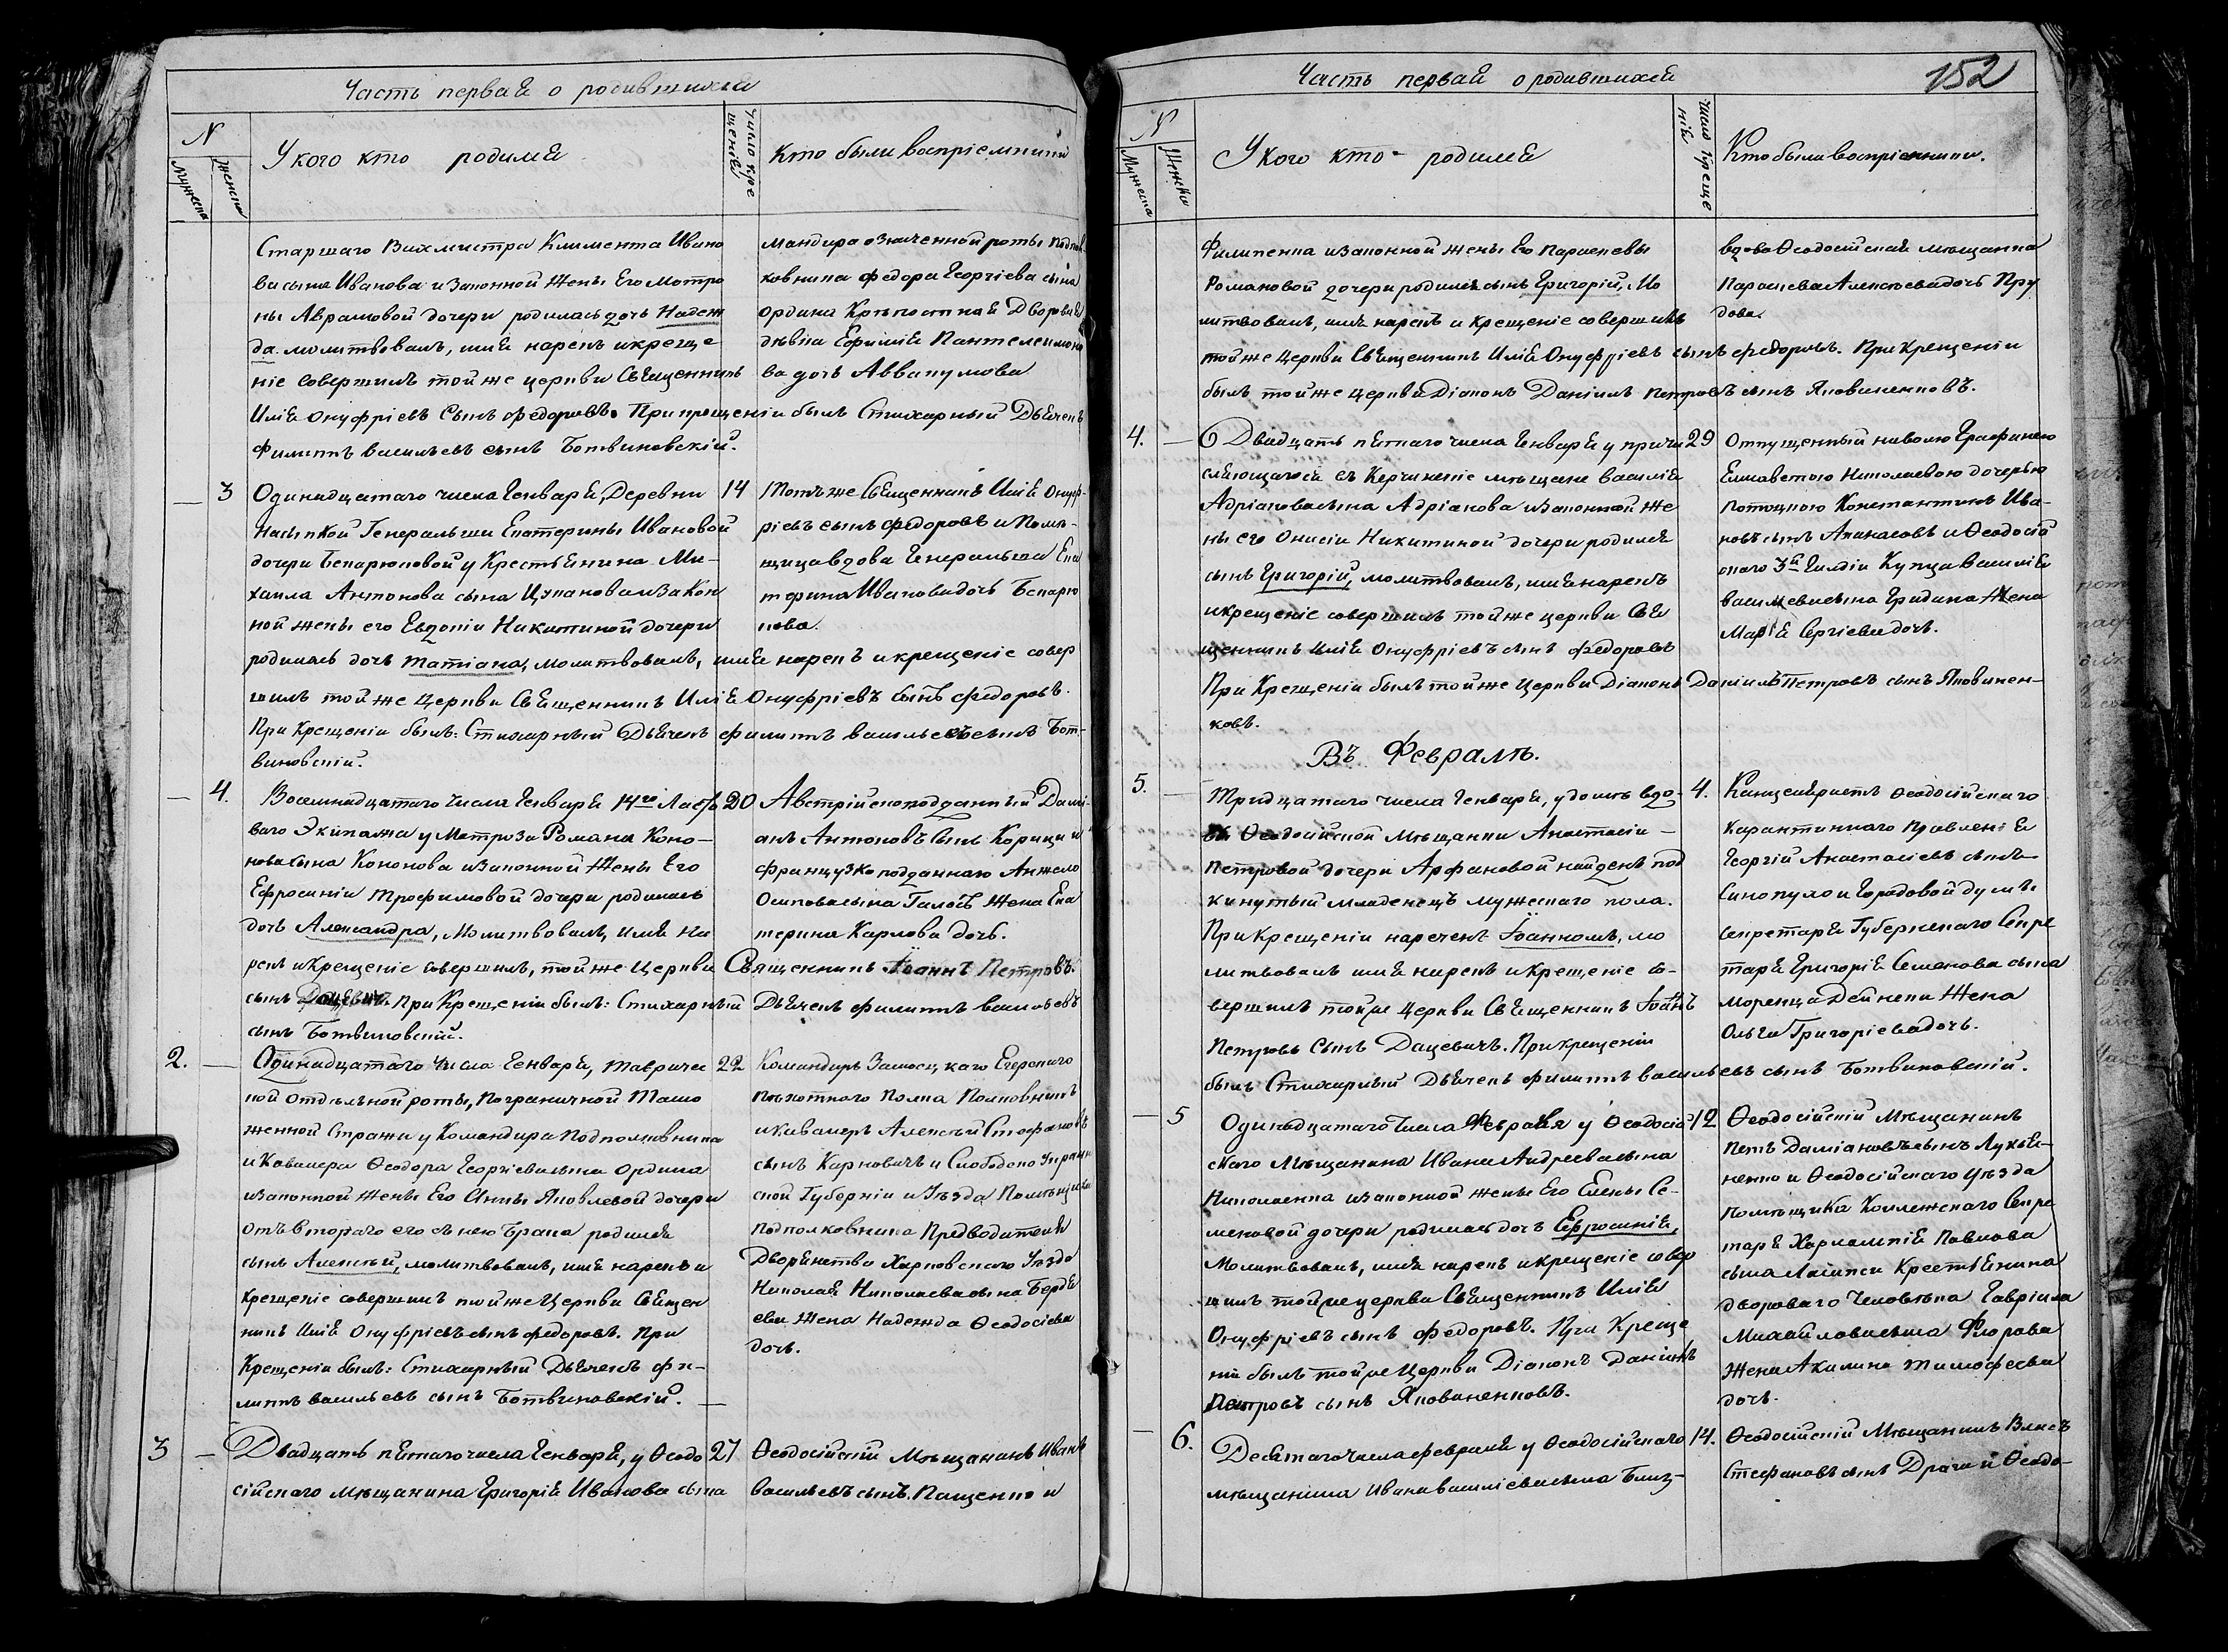 Часть первая о родившихся
N
Мужеска
Женска
У кого кто родился
Число крещенія
Кто были воспріемники
Старшаго Вахмистра Климента Ивано
ва сына Иванова и законной жены Его Мотро
ны Аврамовой дочери родилась дочь Надеж
да. молитвовалъ, имя нарекъ и креще
ніе совершилъ той же церкви Священникъ
Илія Онуфріевъ Сынъ Федоровъ. При крещеніи былъ Стихарный Дьячекъ
Филиппъ васильевъ сынъ Ботвиновскій.
мандира означенной роты Подпол
ковника Федора Георгіева сына
Ордина Крѣпостная Дворовая
дѣвка Ефимія Пантелеимоно
ва дочь Аввакумова
3
Одинадцатаго числа Генваря, Деревни
Насыпкой Генеральши Екатерины Ивановой
дочери Бекарюковой у Крестьянина Ми-
хаила Антонова сына Цупанова и закон
ной жены его Евдокіи Никитиной дочери
родилась дочь Татіана, молитвовалъ, имя нарекъ и крещеніе совер
шилъ той же Церкви Священникъ Илія Онуфріевъ Сынъ Федоровъ.
При Крещеніи былъ: Стихарный Дьячекъ Филиппъ васильевъ сынъ Бот-
виновскій.
14
Тотъ же Священникъ Илія Онуф-
ріевъ сынъ Федоровъ и Помѣ-
щица вдова Генеральша Ека
терина Иванова дочь Бекарю
кова.
4.
Восемнадцатаго Числа Генваря 14го Ласто
ваго Экипажа у Матроза Романа Коно-
нова сына Кононова и законной Жены Его
Ефросиніи Трофимовой дочери родилась
дочь Александра, Молитвовалъ, имя на
рекъ и крещеніе совершилъ, той же Церкви Священникъ Іоаннъ Петровъ
сынъ Дацевичъ. При Крещеніи былъ: Стихарный Дьячекъ Филиппъ васильевъ
сынъ Ботвиновскій.
20
Австрійскоподданный Дамі-
анъ Антоновъ Сынъ Корици и
французкоподданнаго Анжело
Осипова сына Жена Ека
терина Карлова дочь.
2.
Одинадцатаго Числа Генваря, Тавричес
кой Отдѣльной роты, Пограничной Тамо
женной Стражи у Командира Подполковника
и Кавалера Ѳеодора Георгіева сына Ордина
и законной жены Его Анны Яковлевой дочери
отъ втораго его съ нею брака родился
сынъ Алексѣй, молитвовалъ, имя нарекъ и
крещеніе совершилъ той же Церкви Священ
никъ Илія Онуфріевъ сынъ Федоровъ. При
Крещеніи былъ: Стихарный Дьячекъ Фи-
липпъ васильевъ сынъ Ботвиновскій.
22
Командиръ Замосцкаго Егерскаго
пѣхотнаго Полка Полковникъ
и Кавалеръ Алексѣй Стефановъ
сынъ Карновичъ и Слободско Украин
ской Губерніи и Уѣзда Помѣщика
подполковника Предводителя
Дворянства Харковскаго Уѣзда
Николая Николаева сына Бердя
ева Жена Надежда Ѳеодосіева
дочь.
3
Двадцать пятаго числа Генваря, у Ѳеодо
сійскаго мѣщанина Григорія Иванова сына
27
Ѳеодосійскій Мѣщананъ Иванъ
васильевъ сынъ Пащенко и
152
Часть первая о родившихся
N
Мужеска
Женска
У кого кто родился
Число Крещенія
Кто были воспріемники.
Филипенка и законной жены Его Параскевы
Романовой дочери родился сынъ Григорій, Мо
литвовалъ, имя нарекъ и Крещеніе совершилъ
той же Церкви Священникъ Илія Онуфріевъ сынъ Федоровъ. При Крещеніи
былъ той же Церкви Діаконъ Даніилъ Петровъ сынъ Яковиненковъ.
вдова Ѳеодосійская мѣщанка
Параскева Алексѣева дочь Пру
дова.
4.
Двадцать пятаго числа Генваря у причи
сляющагося въ Керчинскіе мѣщане василія
Адріанова сына Адріанова и законной Же
ны его Онисіи Никитиной дочери родился
сынъ Григорій, молитвовалъ, имя нарекъ
и крещеніе совершилъ той же церкви Свя
щенникъ Илія Онуфріевъ сынъ Федоровъ
При Крещеніи былъ той же Церкви Діаконъ Даніилъ Петровъ сынъ Яковинен-
ковъ.
29
Отпущенный на волю Графинею
Елисаветою Николаевою дочерью
Потоцкою Константинъ Ива-
новъ сынъ Апанасовъ и Ѳеодосій
скаго 3й Гилдіи Купца Василія
васильева сына Гридина Жена
Марія Сергіева дочь.
Въ Февралѣ.
5.
Тридцатаго числа Генваря, у дома вдо-
вы Ѳеодосійской Мѣщанки Анастасіи
Петровой дочери Арфановой найденъ под
кинутый Младенецъ мужескаго пола.
При Крещеніи нареченъ Іоанномъ, мо
литвовалъ имя нарекъ и Крещеніе со-
вершилъ той же Церкви Священникъ Іоаннъ
Петровъ Сынъ Дацевичъ. При крещеніи
былъ Стихарный Дьячекъ Филиппъ васильевъ сынъ Ботвиновскій.
4.
Канцеляристъ Ѳеодосійскаго
Карантиннаго Правленія
Георгій Анастасіевъ сынъ
Синопуло и Городовой думы
Секретаря Губернскаго Секре
таря Григорія Семенова сына
Моренца Дейнеки Жена
Ольга Григоріева дочь.
5
Одинадцатаго Числа Февраля у Ѳеодосій
скаго Мѣщанина Ивана Андреева сына
Николаенка и законной жены Его Елены Се-
меновой дочери родилась дочь Ефросинія,
Молитвовалъ, имя нарекъ и крещеніе совер
шилъ той же церкви Священникъ Илія
Онуфріевъ сынъ Федоровъ. При Креще
ніи былъ той же Церкви Діаконъ Даніилъ
Петровъ сынъ Яковиненковъ.
12
Ѳеодосійскій Мѣщанинъ
Петъ Даміановъ сынъ Лукья-
ненко и Ѳеодосійскаго Уѣзда
помѣщика Коллежскаго Секре
таря Харлампія Павлова
сына Крестьянина
двороваго Человѣка Гавріила
Михайлова сына Флорова
Жена Акилина Тимофеева
дочь.
6.
Десятаго Числа февраля у Ѳеодосійскаго
мѣщанина Ивана василіева сына Близ-
14.
Ѳеодосійскій Мѣщанинъ Власъ
Стефановъ сынъ Драга и Ѳеодо-